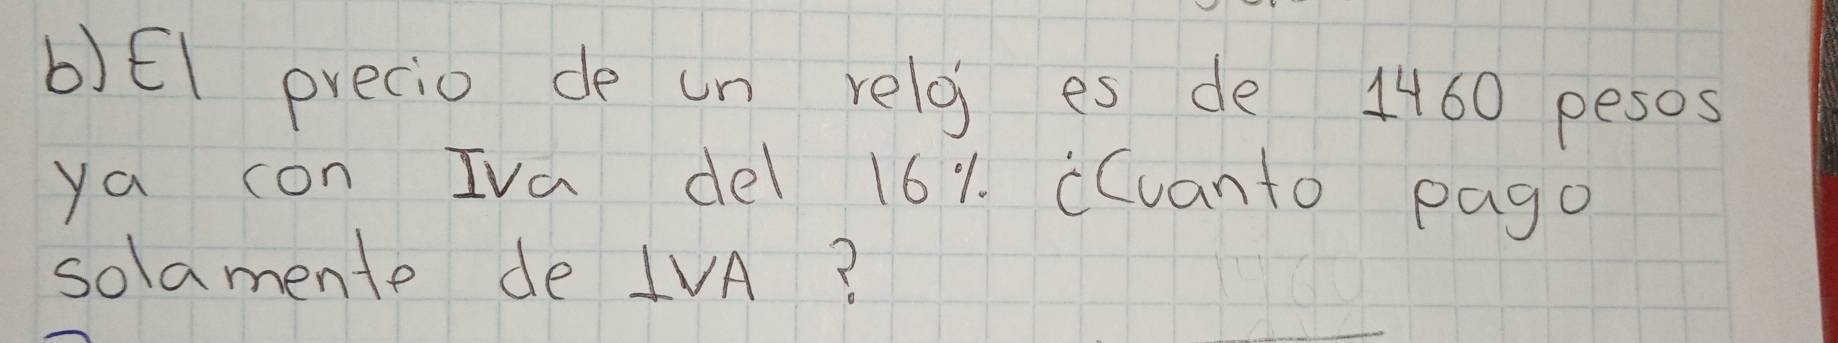 b) El precio de un reloj es de 1460 pesos
ya con Iva del 16% ¿Cuanto pago
solamente de IVA ?